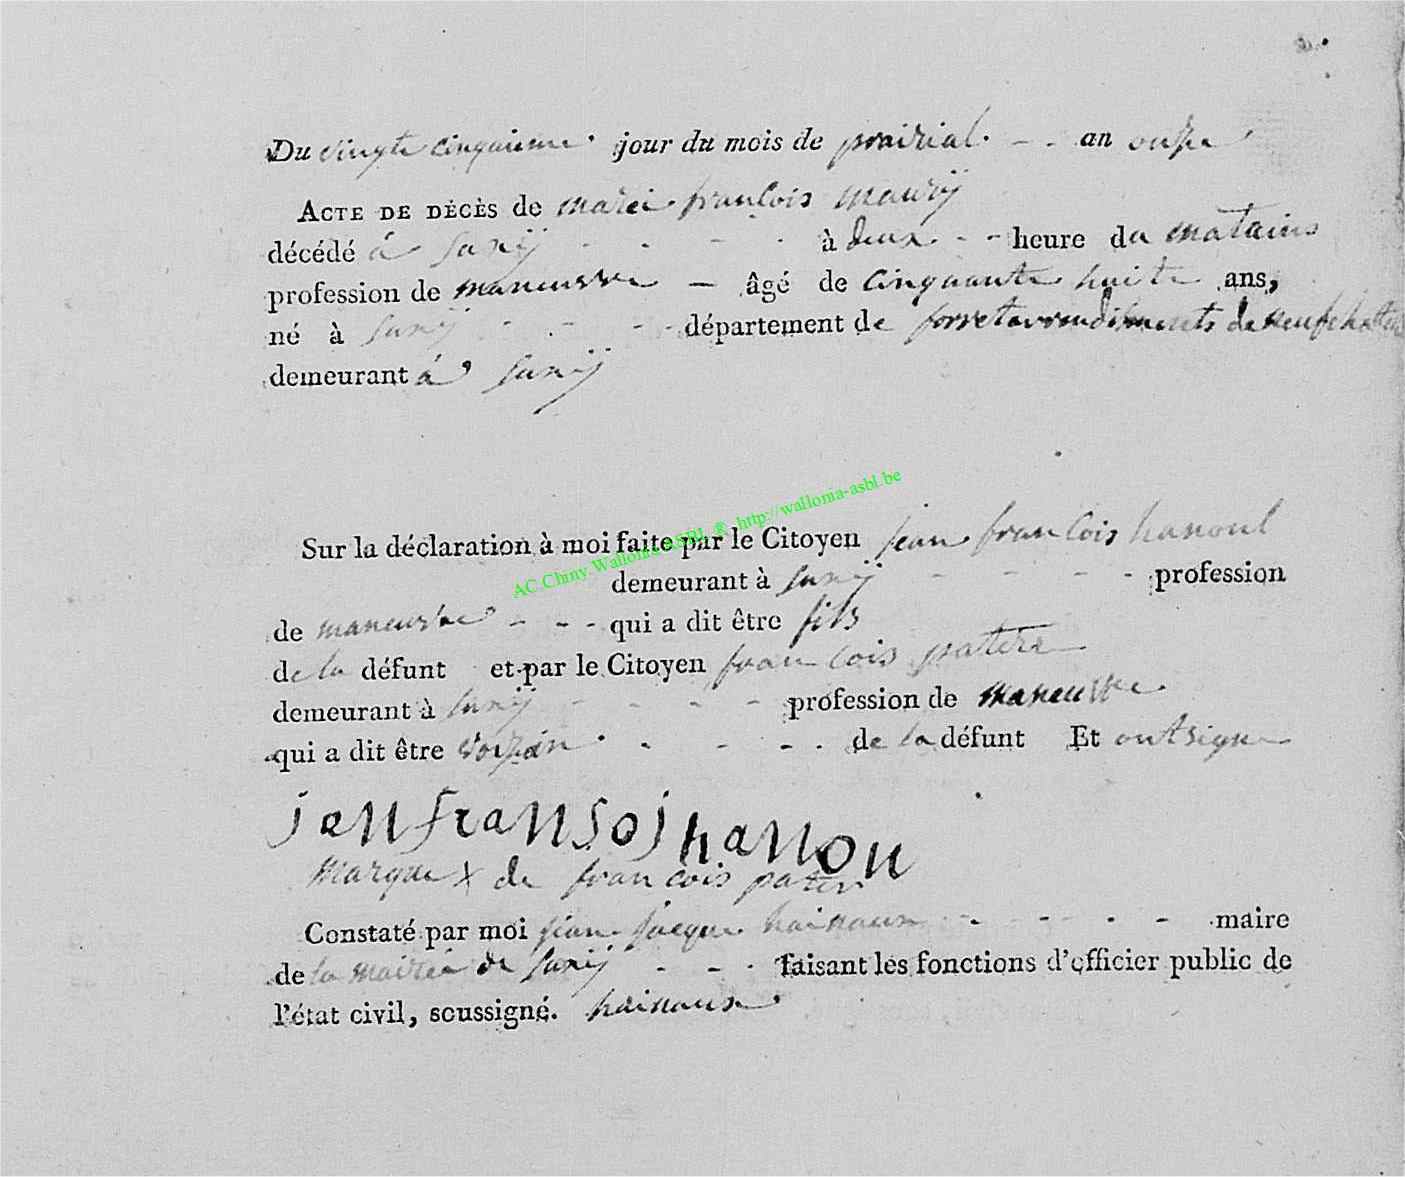 Du vingte cinquieme jour du mois de prairial. - - an onfze
ACTE DE DÉCÈS de marei françois maurÿ
décédé á Suxÿ - - - - à deux - - heure du matains
profession de maneuvre — âgé de cinquante huite ans,
né à Suxÿ - - - - département de forretarrondisments de neufchatteau
demeurant á Suxÿ
Sur la déclaration à moi faite par le Citoyen jean françois hanoul
AC Chiny Wallonia ASBL ® http://wallonia-asbl.be
demeurant à Suxÿ - - - - - profession
de maneuvre - - - qui a dit être fils
de la défunt et par le Citoyen françois patere
demeurant à Suxÿ - - - - profession de maneuvre
qui a dit être voizin - - - - de la défunt Et ont signe
jan fransoj hanou
marque x de francois pater
Constaté par moi jean jacque hainaux - - - - - maire
de la mairée de Suxÿ - - - faisant les fonctions d'officier public de
l'état civil, soussigné. hainaux